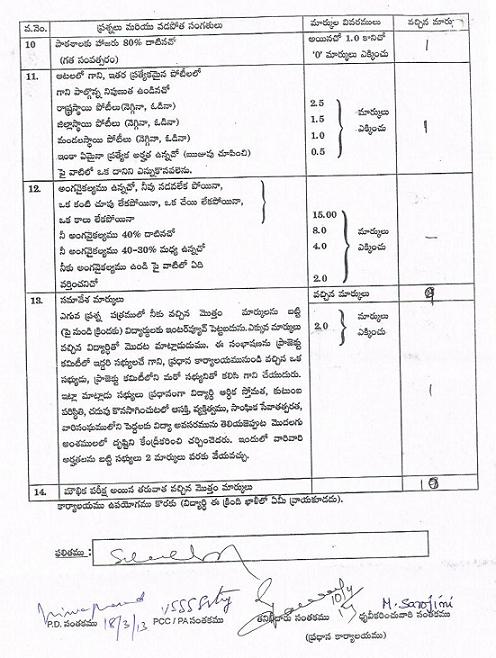 వ.నెం. ప్రశ్నలు మరియు వడపోత సంగతులు మార్కుల వివరములు వచ్చిన మార్కు
10 పాఠశాలకు హాజరు 80% దాటినచో అయినచో 1.0 కానిచో 1
(గత సంవత్సరం) '0' మార్కులు ఎక్కించు
11. ఆటలలో గాని, ఇతర ప్రత్యేకమైన పోటీలలో
గాని పాల్గొన్న నిపుణత ఉండినచో
రాష్ట్రస్థాయి పోటీలు(నెగ్గినా, ఓడినా) 2.5 మార్కులు
జిల్లాస్థాయి పోటీలు (నెగ్గినా, ఓడినా) 1.5 ఎక్కించు 1
మండలస్థాయి పోటీలు (నెగ్గినా, ఓడినా) 1.0
ఇంకా ఏమైనా ప్రత్యేక అర్హత ఉన్నచో (ఋజువు చూపించి) 0.5
పై వాటిలో ఒక దానిని ఎన్నుకొనవలెను.
12. అంగవైకల్యము ఉన్నచో, నీవు నడవలేక పోయినా,
ఒక కంటి చూపు లేకపోయినా, ఒక చేయి లేకపోయినా,
ఒక కాలు లేకపోయినా 15.00
నీ అంగవైకల్యము 40% దాటినచో 8.0 మార్కులు
నీ అంగవైకల్యము 40-30% మధ్య ఉన్నచో 4.0 ఎక్కించు –
నీకు అంగవైకల్యము ఉండి పై వాటిలో ఏది
వర్తించనిచో 2.0
13. సమావేశ మార్కులు వచ్చిన మార్కులు
ఎగువ ప్రశ్న పత్రములో నీకు వచ్చిన మొత్తం మార్కులను బట్టి 2.0 మార్కులు
(పై నుండి క్రిందకు) విద్యార్థులకు ఇంటర్వ్యూన్ పెట్టబడును.ఎక్కువ మార్కులు ఎక్కించు
వచ్చిన విద్యార్థితో మొదట మాట్లాడుదుము. ఈ సంభాషణను ప్రాజెక్టు
కమిటీలో ఇద్దరి సభ్యులచే గాని, ప్రధాన కార్యాలయమునుండి వచ్చిన ఒక
సభ్యుడు, ప్రాజెక్టు కమిటీలోని మరో సభ్యునితో కలిసి గాని చేయుదురు.
ఇట్లా మాట్లాడు సభ్యులు ప్రధానంగా విద్యార్థి ఆర్థిక స్తోమత, కుటుంబ 1
పరిస్థితి, చదువు కొనసాగించుటలో ఆసక్తి, వ్యక్తిత్వము, సాంఘిక సేవాతత్పరత,
వారిసంఘములోని పెద్దలకు విద్యా అవసరమును తెలియజెప్పుట మొదలగు
అంశములలో దృష్టిని కేంద్రీకరించి చర్చించెదరు. ఇందులో వారివారి
అర్హతలను బట్టి సభ్యులు 2 మార్కులు వరకు వేయవచ్చు.
14. మౌఖిక పరీక్ష అయిన తరువాత వచ్చిన మొత్తం మార్కులు
కార్యాలయము ఉపయోగము కొరకు (విద్యార్థి ఈ క్రింది ఖాళీలో ఏమీ వ్రాయకూడదు).
ఫలితము :
18/3/13 10/4 M. Sarojini
P.D. సంతకము PCC / PA సంతకము తనిఖీదారు సంతకము ధృవీకరించువారి సంతకము
(ప్రధాన కార్యాలయము)